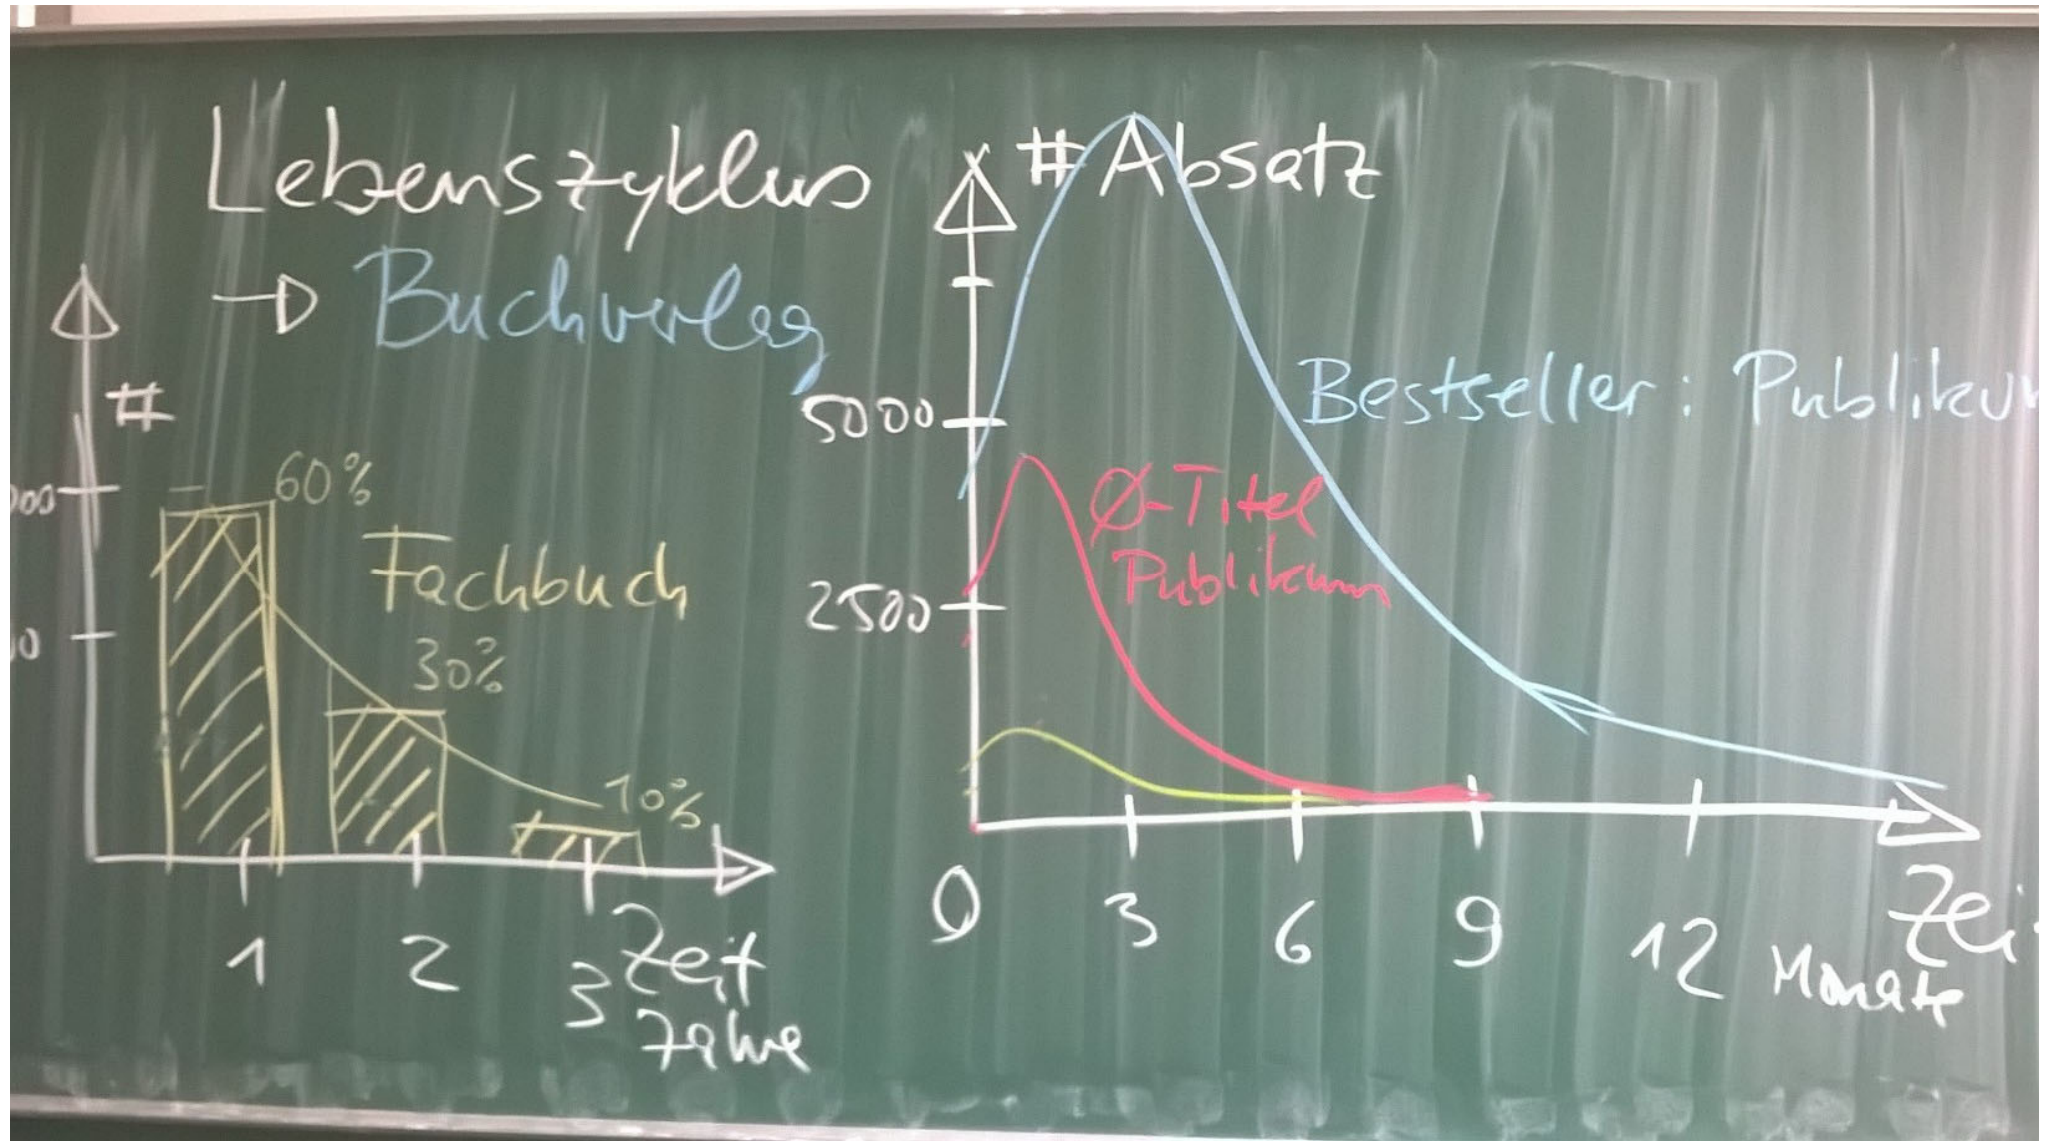 Lebenszyklus
→ Buchverlag
#
00
0
60%
Fachbuch
30%
10%
1 2 3
Zeit
Jahre
# Absatz
5000
2500
Bestseller: Publikum
Ø-Titel
Publikum
0 3 6 9 12
Monate
Zei